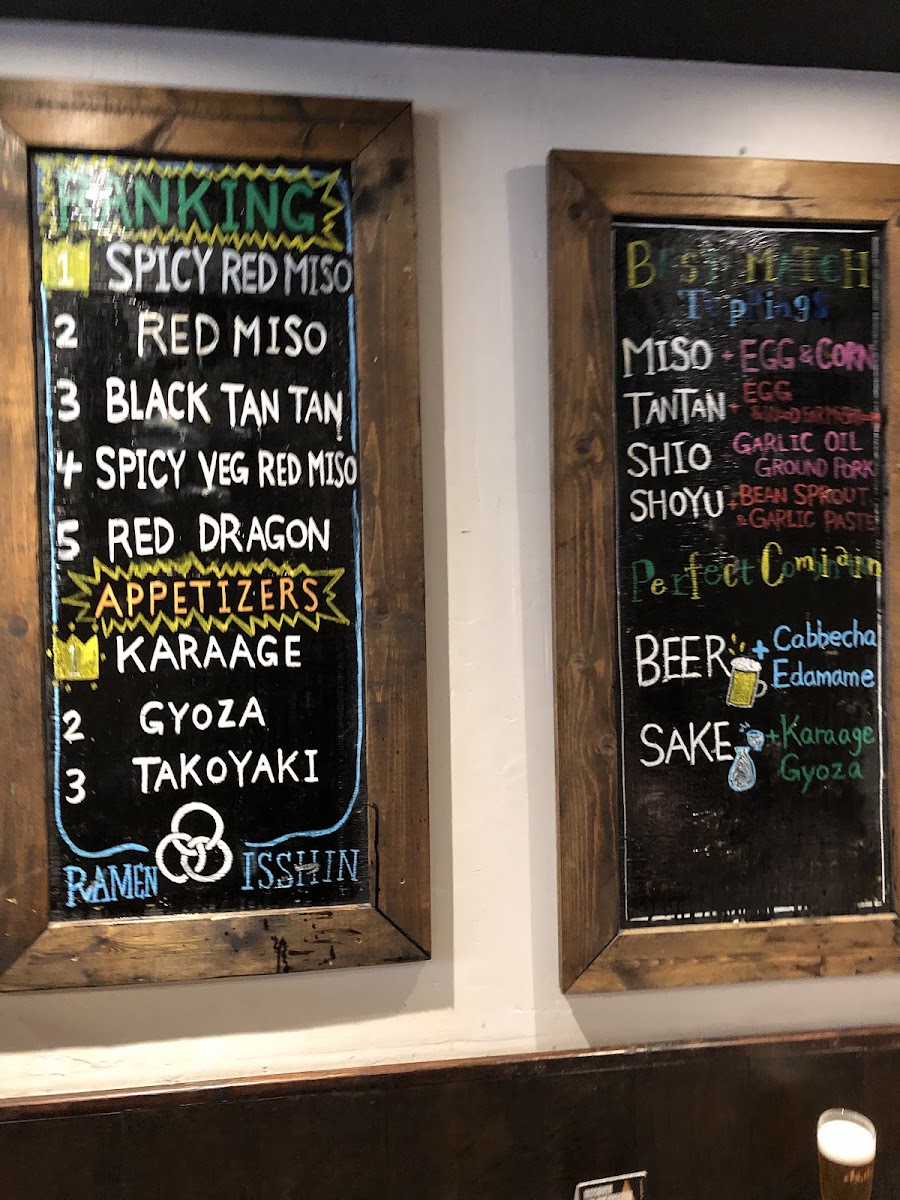 RANKING
1 SPICY RED MISO
2 RED MISO
3 BLACK TAN TAN
4 SPICY VEG RED MISO
5 RED DRAGON
APPETIZERS
1 KARAAGE
2 GYOZA
3 TAKOYAKI
RAMEN ISSHIN
BEST MATCH
Toppings
MISO + EGG & CORN
TANTAN + EGG
&
SHIO GARLIC OIL
GROUND PORK
SHOYU + BEAN SPROUT
& GARLIC PASTE
Perfect Combination
BEER + Cabbecha
Edamame
SAKE + Karaage
Gyoza